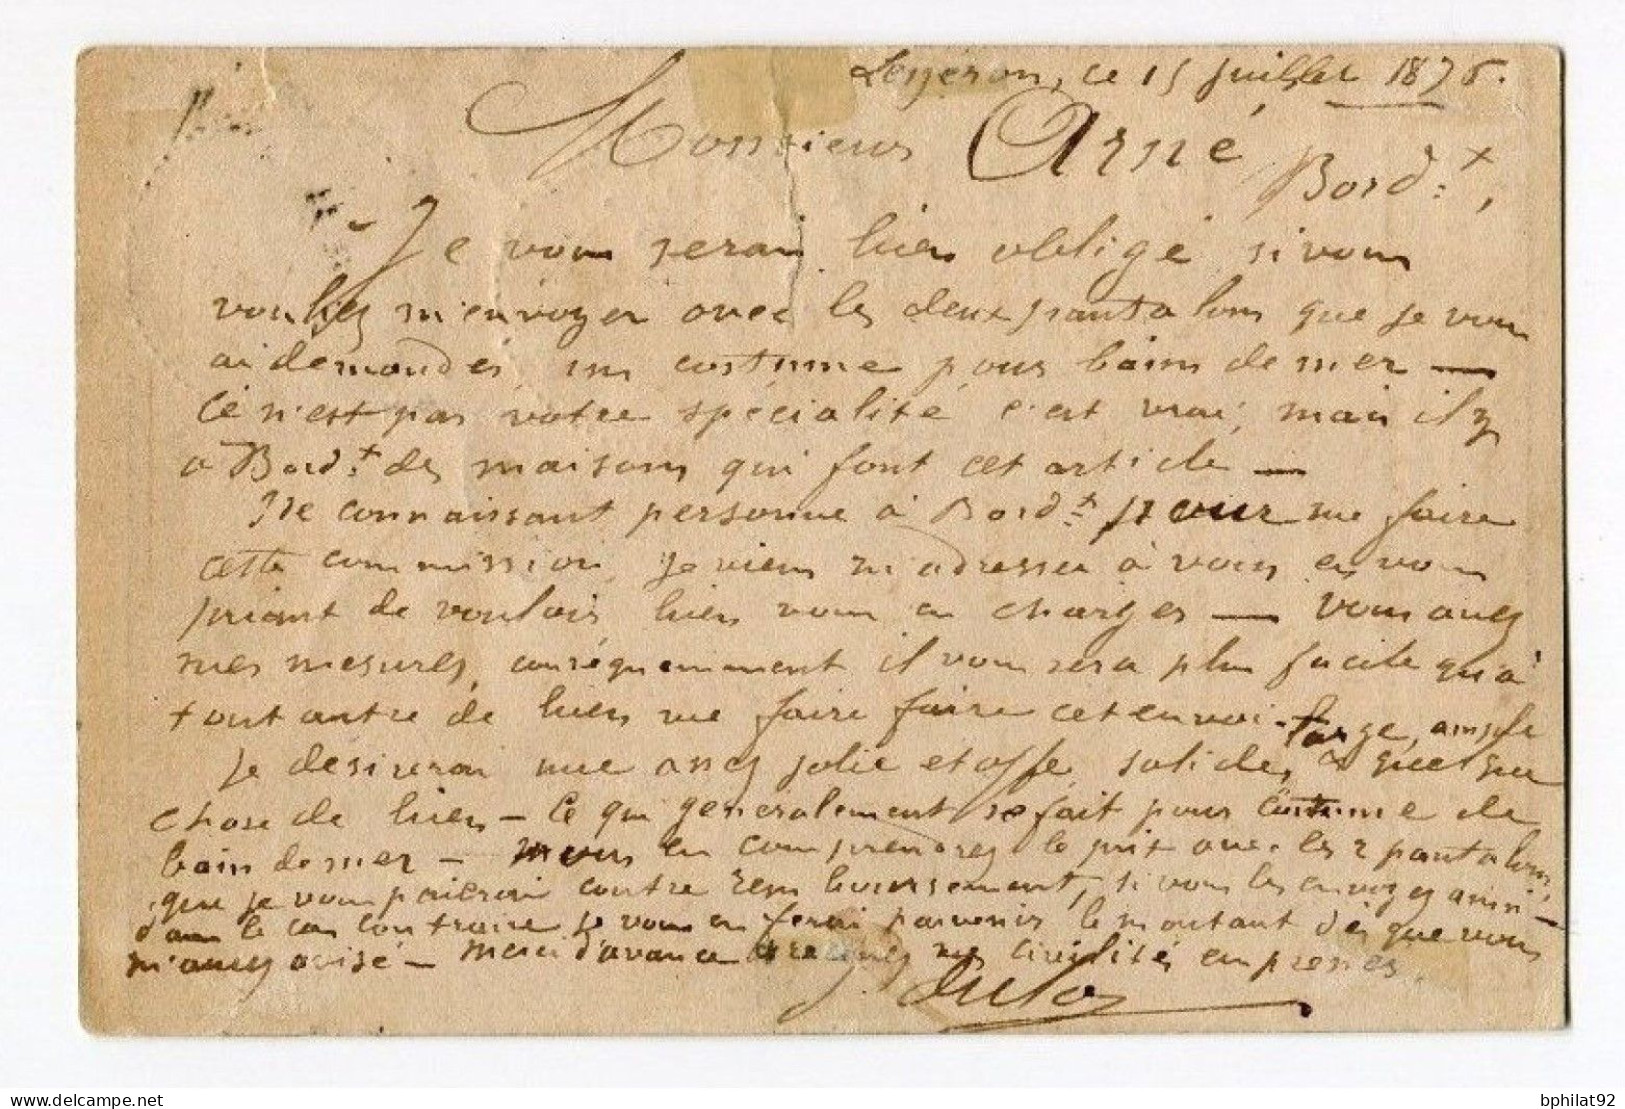 ce 15 juillet 1875.
Monsieur Arné
Bord.x,
- Je vous serai bien obligé si vous
vouliez m'envoyer avec les deux pantalons que je vous
ai demandés un costume pour bains de mer —
Ce n'est pas votre spécialité c'est vrai, mais il y
a Bord.x des maisons qui font cet article —
Ne connaissant personne à Bord.x pour me faire
cette commission, je viens m'adresser à vous en vous
priant de vouloir bien vous en charger — Vous avez
mes mesures, conséquemment il vous sera plus facile qu'à
tout autre de bien me faire faire cet envoi -
Je désirerai une assez jolie étoffe, solide, large, ample & quelque
chose de bien - Ce qui généralement se fait pour costume de
bain de mer - vous en comprendrez le prix avec les 2 pantalons
que je vous paierai contre remboursement, si vous les envoyez ainsi -
dans le cas contraire je vous en ferai parvenir le montant dès que vous
m'aurez avisé - Merci d'avance & recevez mes civilités empressées.
J.
delcampe.net
bphilat92